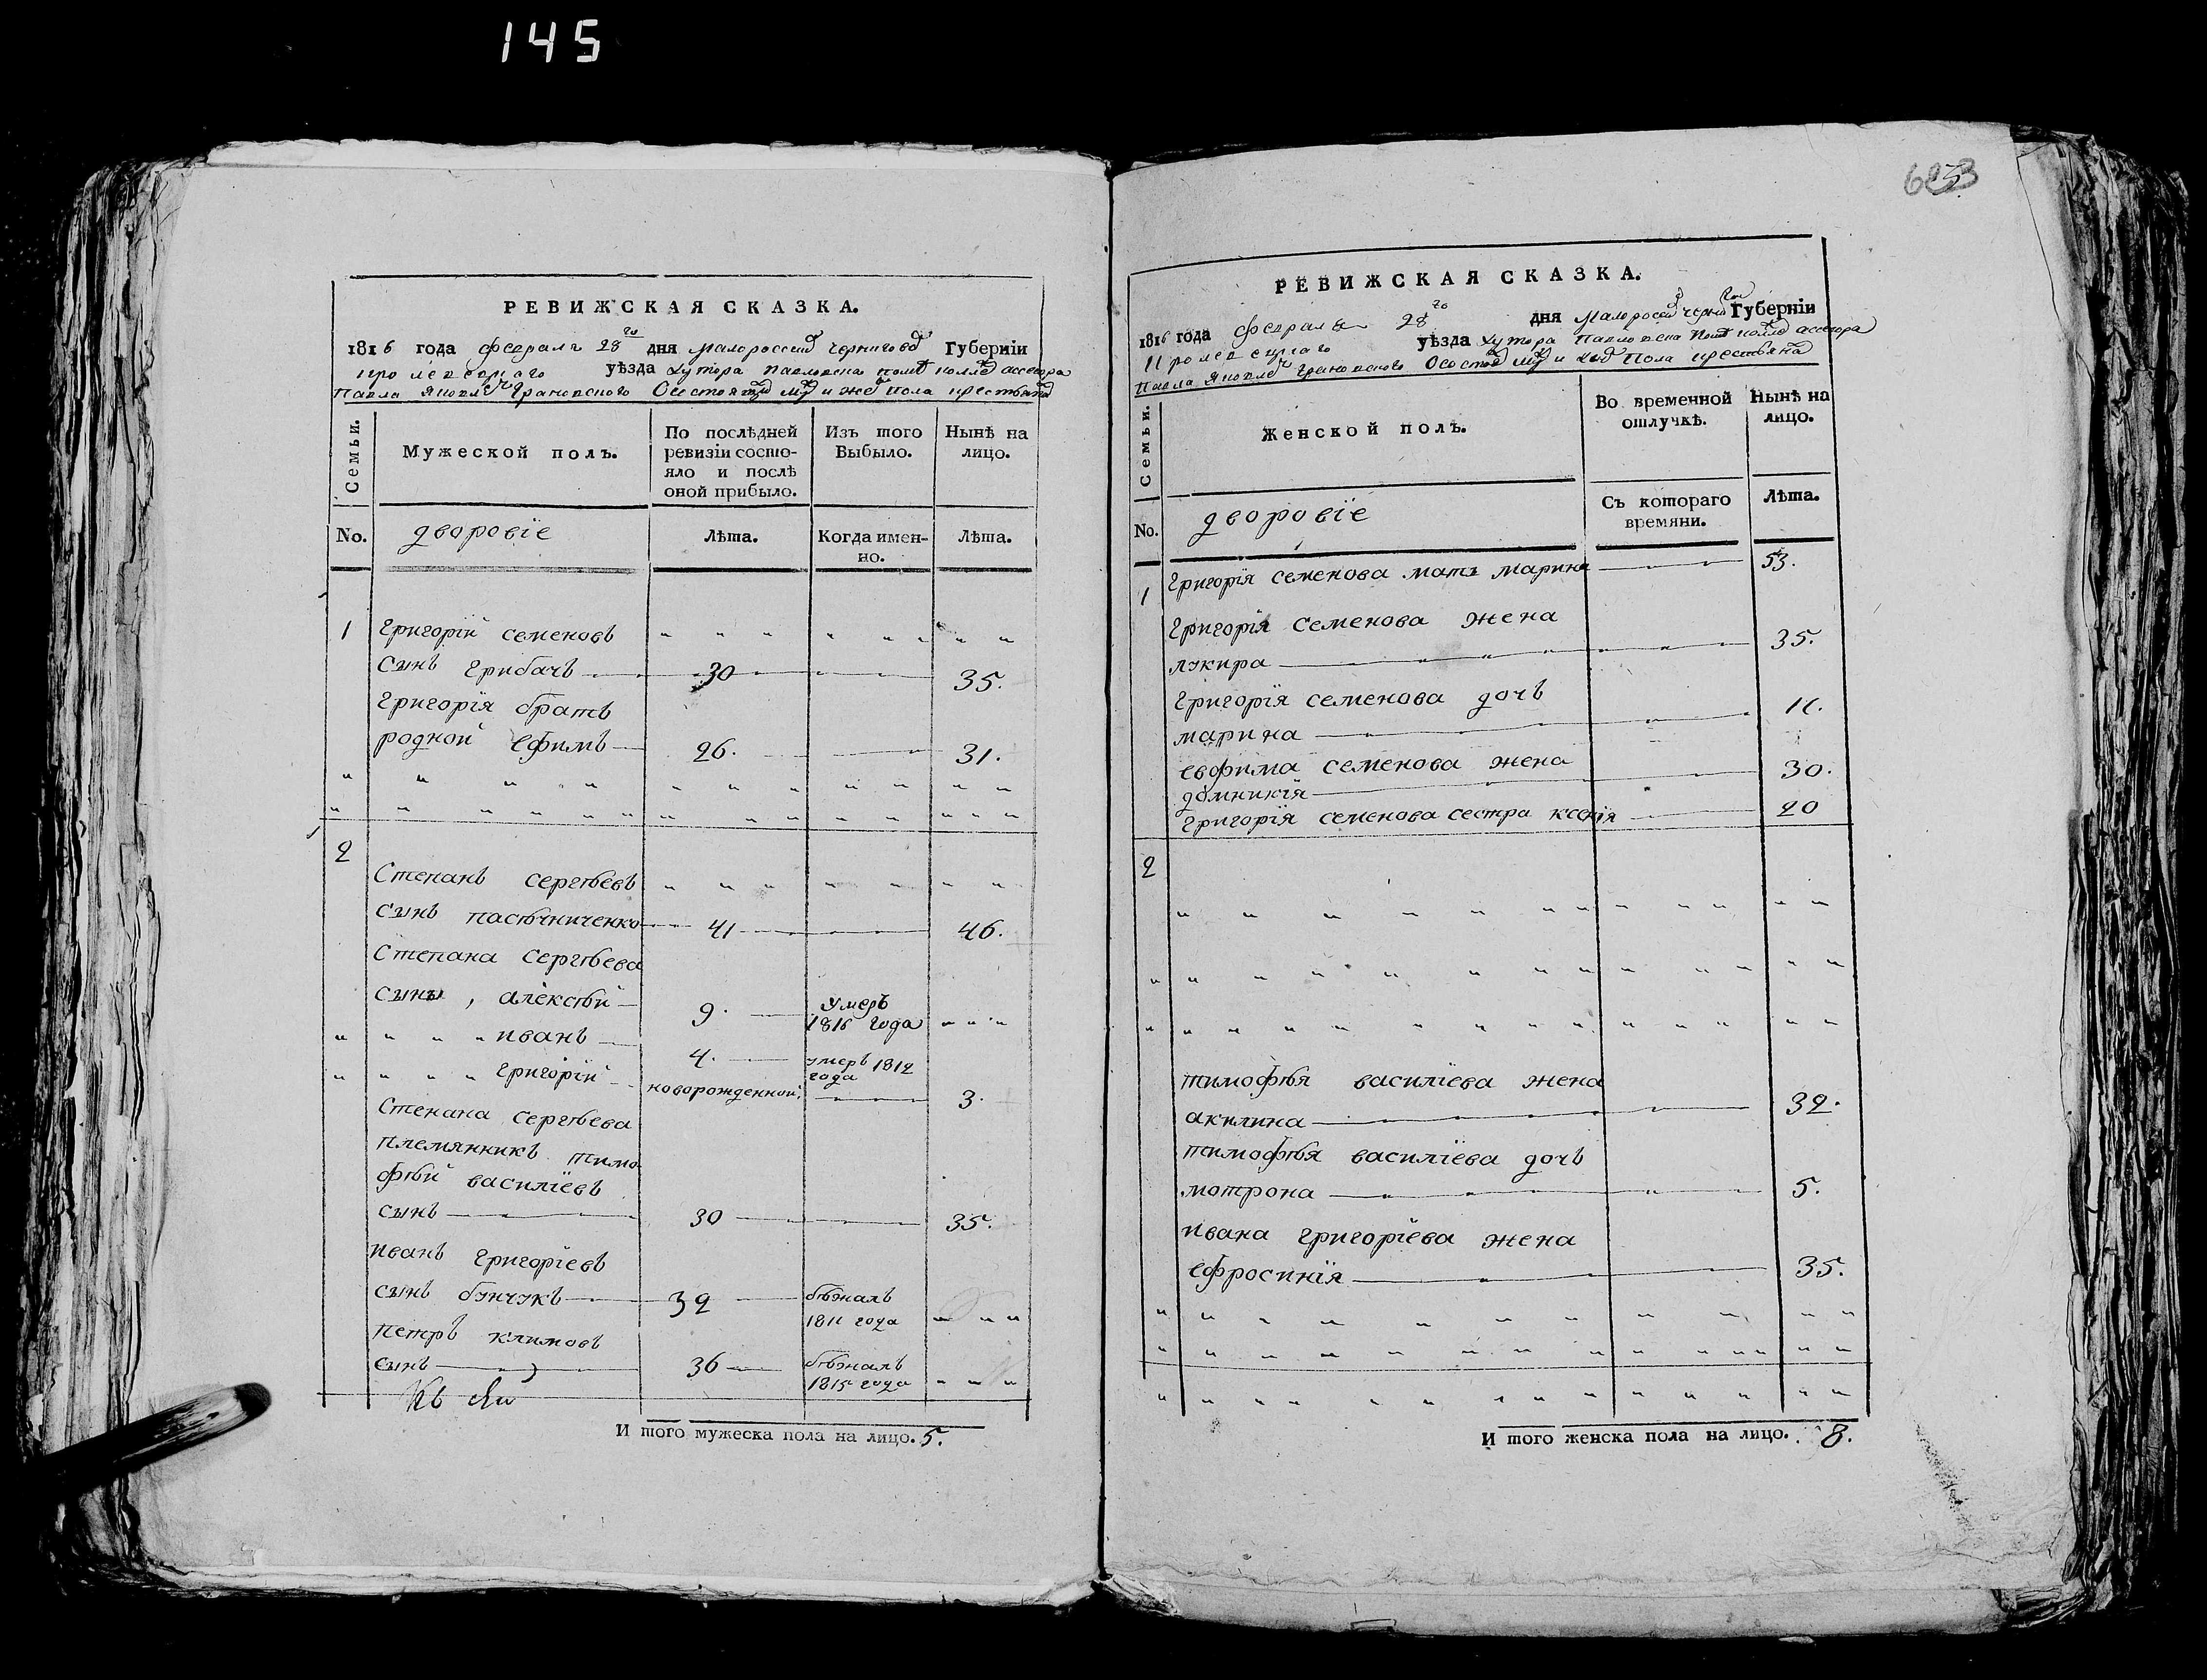 145
РЕВИЖСКАЯ СКАЗКА.
1816 года февраля 28го дня Малоросий Черниговс Губерніи
Кролевецкаго уѣзда хутора Павловска асесора
Павла Яковл Грановского О состоящ муж и жен пола крестьянъ
Семьи.
Мужеской полъ.
По послѣдней ревизіи состояло и послѣ оной прибыло.
Изъ того Выбыло.
Нынѣ на лицо.
No.
дворовіе
Лѣта.
Когда именно.
Лѣта.
1 Григорій семеновъ
сынъ Грибачъ 30 35.
Григорія братъ
родной Ефимъ 26. 31.
2
Степанъ сергѣевъ
сынъ пасѣчниченко 41 46.
Степана сергѣева
сыны, алексѣй 9. умеръ 1815 года
иванъ 4. умеръ 1812 года
Григорій новорожденной 3.
Степана сергѣева
племянникъ тимо
фѣй василіевъ
сынъ 30 35.
иванъ Григоріевъ
сынъ бунчукъ 32 бѣжалъ 1811 года
петръ климовъ
сынъ 36 бѣжалъ 1815 года
И того мужеска пола на лицо. 5.
РЕВИЖСКАЯ СКАЗКА.
1816 года февраля 28го дня Малоросий Черни Губерніи
Кролевецкаго уѣзда хутора Павловска асесора
Павла Яковл Грановского О состоя муж и жен пола крестьянъ
Семьи.
Женской полъ.
Во временной отлучкѣ.
Нынѣ на лицо.
No.
дворовіе
Съ котораго времяни.
Лѣта.
1 Григорія семенова мать марина 53.
Григорія семенова жена
лукира 35.
Григорія семенова дочъ
марина 11.
евфима семенова жена
домникія 30.
Григорія семенова сестра ксенія 20
2
тимофѣя василіева жена
акилина 32.
тимофѣя василіева дочъ
мотрона 5.
ивана григоріева жена
ефросинія 35.
И того женска пола на лицо. 8.